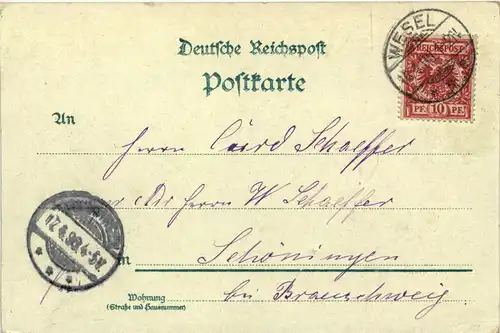 WESEL
Deutsche Reichspost
Postkarte
REICHSPOST
PF. 10 PF.
An
Herrn Curd Schaeffer
Adr Herrn W Schaeffer
in Schöningen
Wohnung bei Braunschweig
(Straße und Hausnummer)